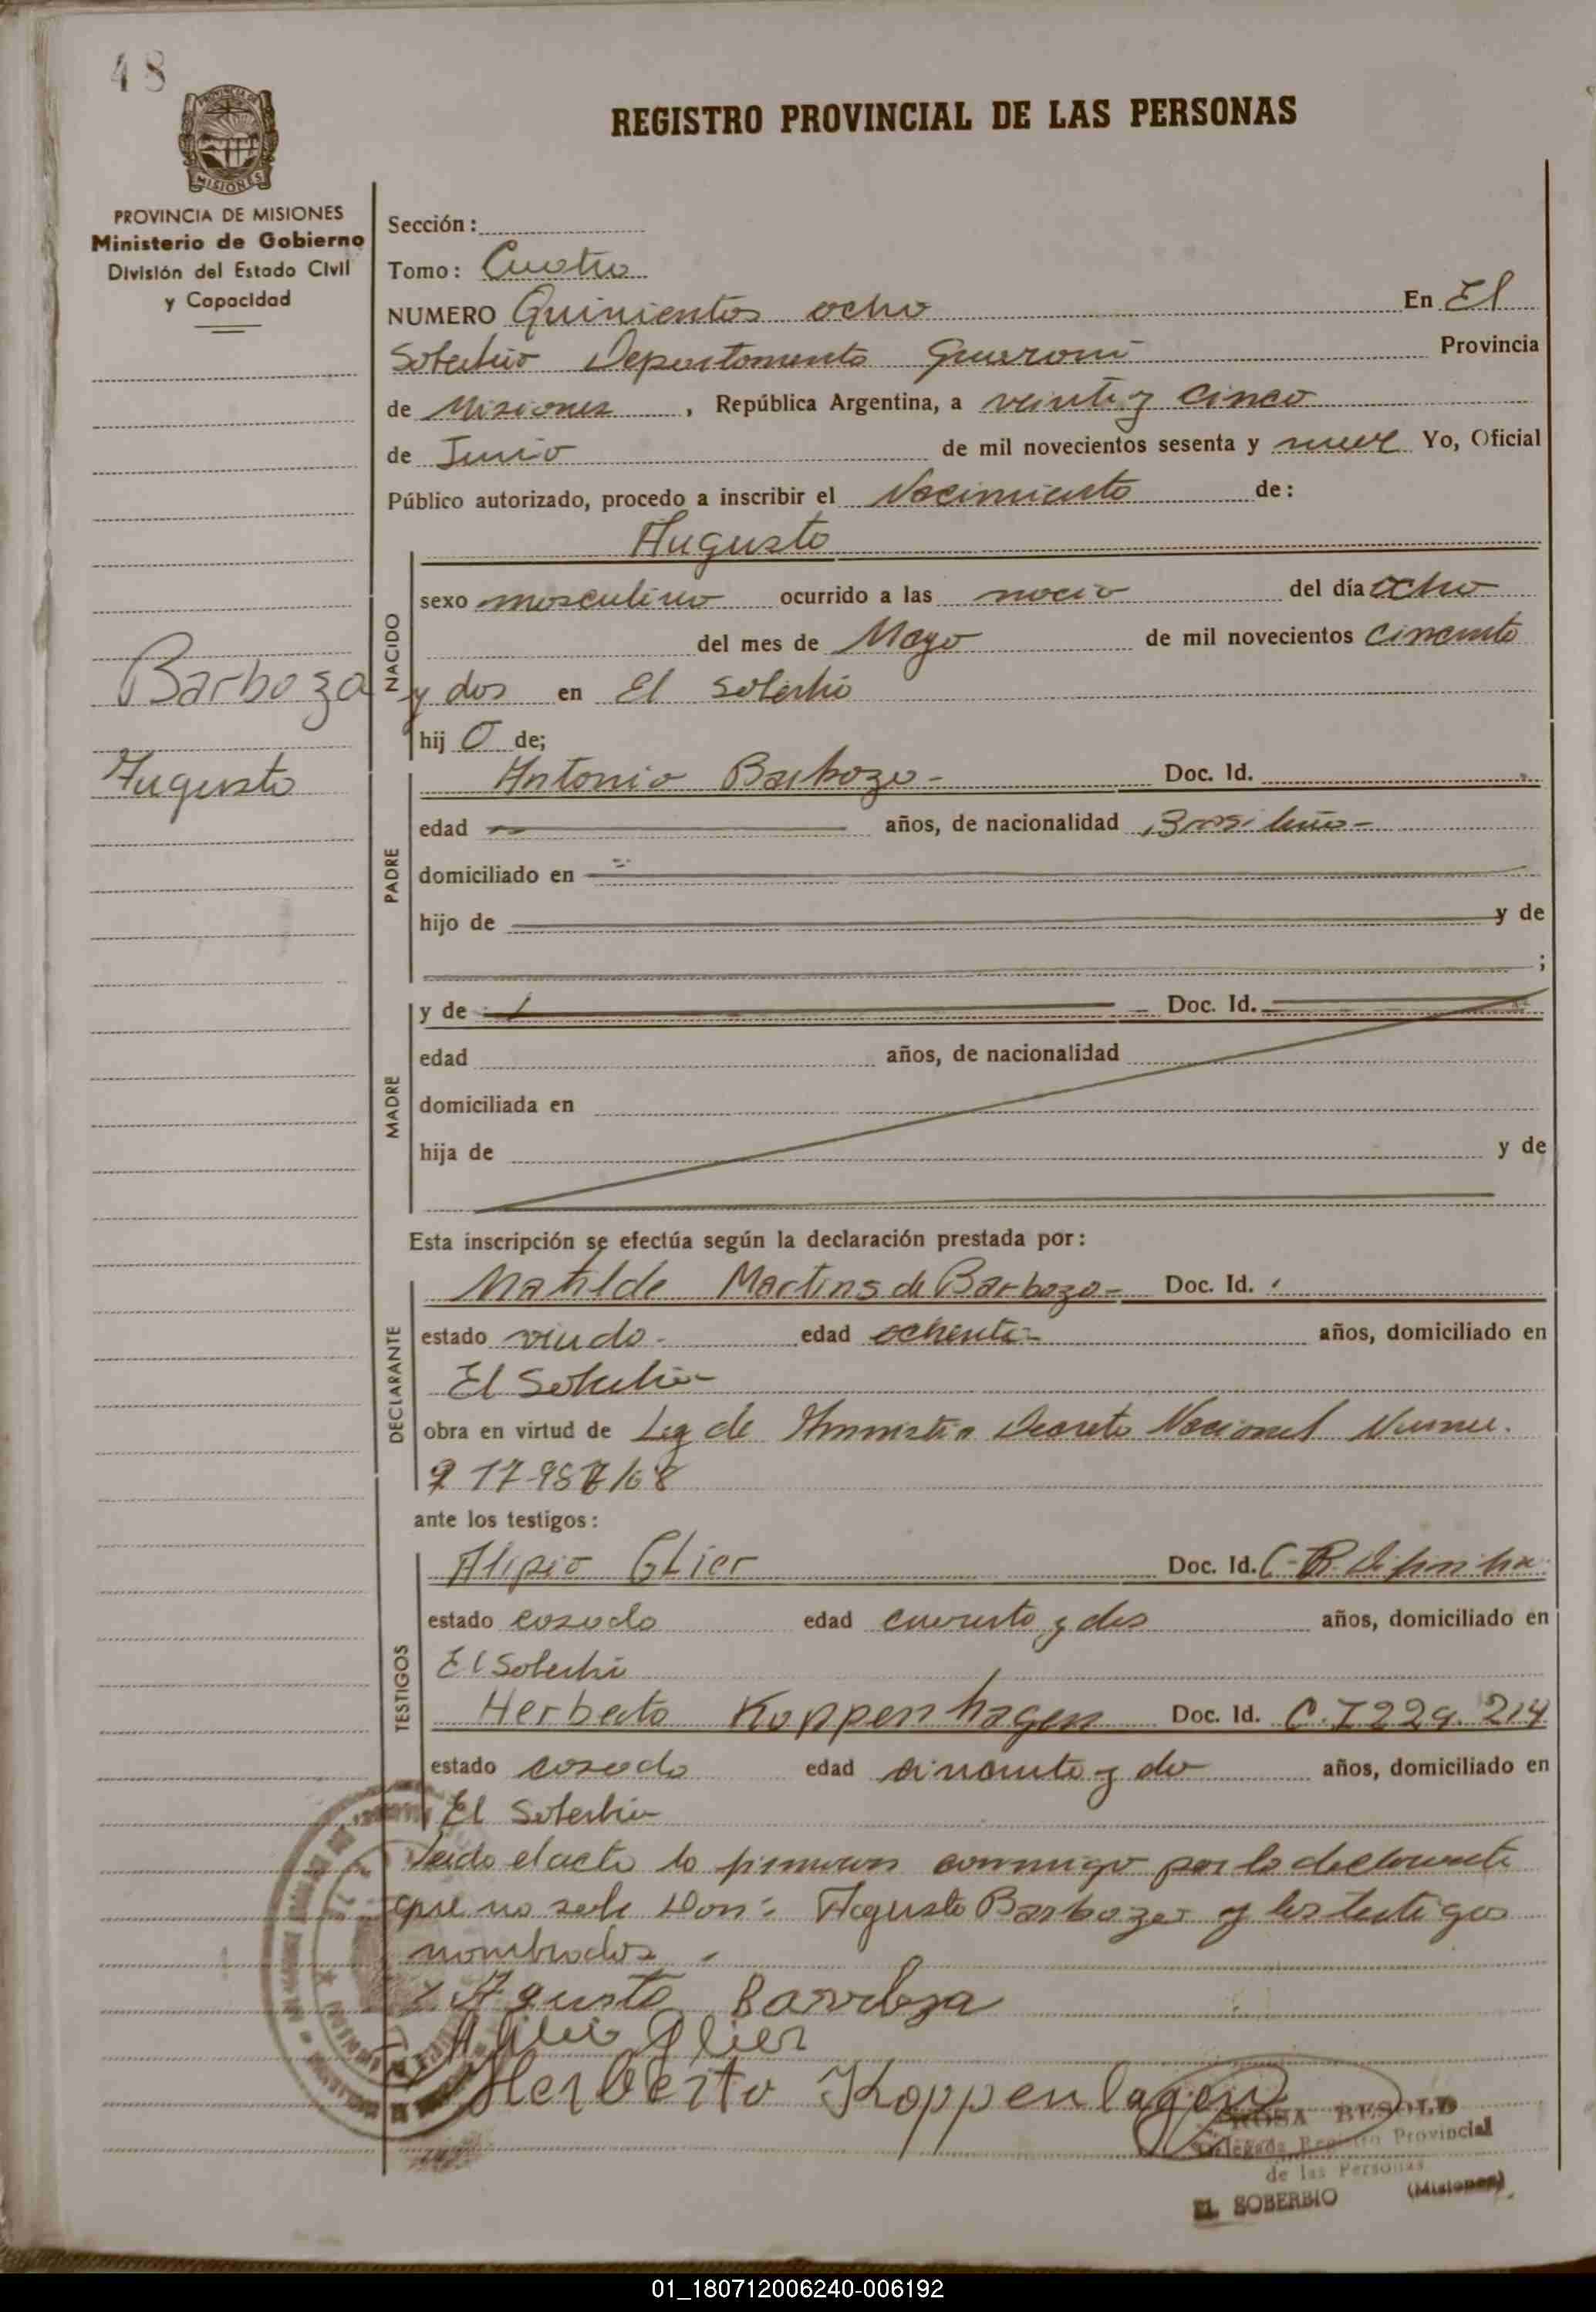 48
REGISTRO PROVINCIAL DE LAS PERSONAS
PROVINCIA DE MISIONES
Ministerio de Gobierno
División del Estado Civil
y Capacidad
Sección:
Tomo: Cuatro
NUMERO Quinientos ocho En El
Soberbio Departamento Guarani Provincia
de Misiones, República Argentina, a veinte y cinco
de Junio de mil novecientos sesenta y nueve Yo, Oficial
Público autorizado, procedo a inscribir el Nacimiento de:
Augusto
NACIDO
sexo masculino ocurrido a las del día ocho
del mes de Mayo de mil novecientos cincuenta
y dos en El Soberbio
hij o de;
Barboza
Augusto
PADRE
Antonio Barboza - Doc. Id.
edad años, de nacionalidad Brasileño -
domiciliado en
hijo de y de
;
MADRE
y de Doc. Id.
edad años, de nacionalidad
domiciliada en
hija de y de
Esta inscripción se efectúa según la declaración prestada por:
DECLARANTE
Matilde Martins de Barboza - Doc. Id.
estado viuda - edad ochenta - años, domiciliado en
El Soberbio -
obra en virtud de Ley de Decreto Nacional
17-987/68
ante los testigos:
TESTIGOS
Alipio Glier Doc. Id. C-
estado casado edad cuarenta y dos años, domiciliado en
El Soberbio
Herberto Koppenhagen Doc. Id. C.I 229.214
estado casado edad cincuenta y dos años, domiciliado en
El Soberbio
Leido el acta lo firmaron conmigo por la declarante
que no sabe Don: Agusto Barboza y los testigos
nombrados.
Agusto Barboza
Alipio Glier
Herberto Koppenhagen
ROSA BESOLD
Delegada Registro Provincial
de las Personas
EL SOBERBIO (Misiones)
01_180712006240-006192